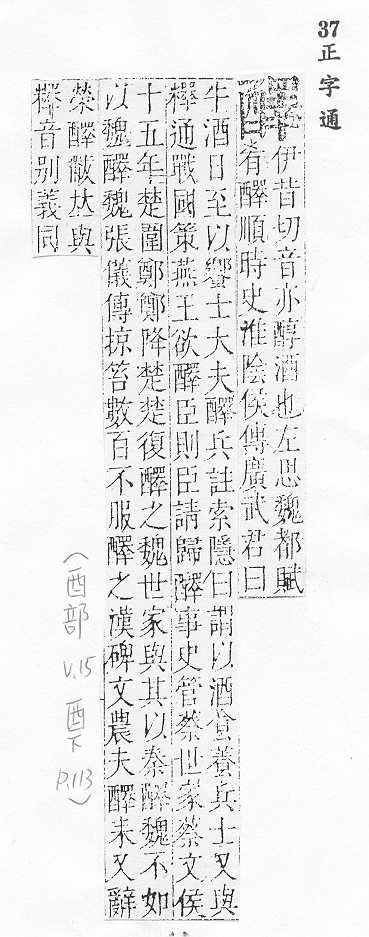 37正字通
醳
伊昔切音亦醇酒也左思魏都賦
肴醳順時史淮陰侯傳廣武君曰
牛酒日至以饗士大夫醳兵註索隱曰謂以酒食養兵士又與
釋通戰國策燕王欲醳臣則臣請歸醳事史管蔡世家蔡文侯
十五年楚圍鄭鄭降楚楚復醳之魏世家與其以秦醳魏不如
以魏醳魏張儀傳掠笞數百不服醳之漢碑文農夫醳耒又辭
榮醳黻𠀤與
釋音別義同
(酉部 v.15 酉下 p.113)